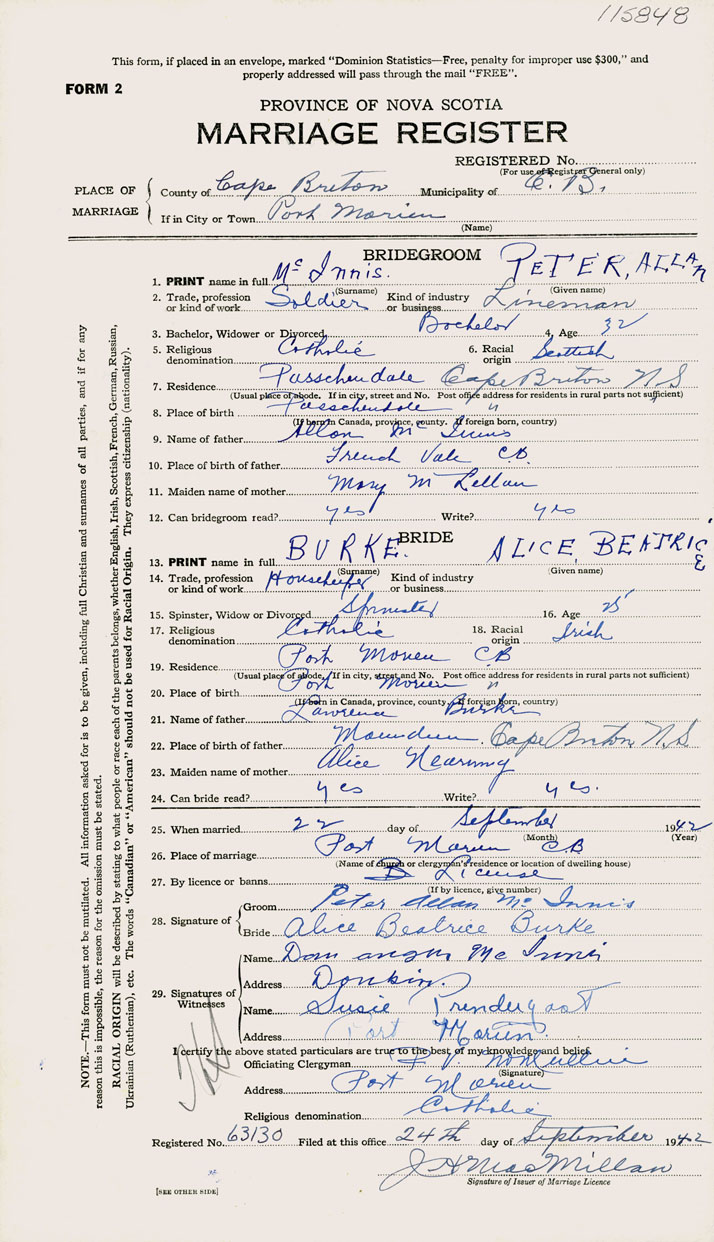 115848
This form, if placed in an envelope, marked "Dominion Statistics—Free, penalty for improper use $300," and
properly addressed will pass through the mail "FREE".
FORM 2
PROVINCE OF NOVA SCOTIA
MARRIAGE REGISTER
REGISTERED No.
(For use of Registrar General only)
PLACE OF MARRIAGE
County of Cape Breton Municipality of C. B.
If in City or Town Port Morien
(Name)
BRIDEGROOM
1. PRINT name in full Mc Innis. PETER, ALLAN
(Surname) (Given name)
2. Trade, profession or kind of work Soldier Kind of industry or business Lineman
3. Bachelor, Widower or Divorced Bachelor 4. Age 32
5. Religious denomination Catholic 6. Racial origin Scottish
7. Residence Passchendale Cape Breton N S
(Usual place of abode. If in city, street and No. Post office address for residents in rural parts not sufficient)
8. Place of birth Passchendale "
(If born in Canada, province, county. If foreign born, country)
9. Name of father Allan Mc Innis
10. Place of birth of father French Vale C.B.
11. Maiden name of mother Mary M Lellan
12. Can bridegroom read? yes Write? yes
BRIDE
13. PRINT name in full BURKE ALICE, BEATRICE
(Surname) (Given name)
14. Trade, profession or kind of work Housekeeper Kind of industry or business
15. Spinster, Widow or Divorced Spinster 16. Age 25
17. Religious denomination Catholic 18. Racial origin Irish
19. Residence Port Morien CB
(Usual place of abode. If in city, street and No. Post office address for residents in rural parts not sufficient)
20. Place of birth Port Morien "
(If born in Canada, province, county. If foreign born, country)
21. Name of father Lawrence Burke
22. Place of birth of father Cape Breton N.S
23. Maiden name of mother Alice Nearing
24. Can bride read? yes Write? yes.
25. When married 22 day of September 1942
(Month) (Year)
26. Place of marriage Port Morien CB
(Name of church or clergyman's residence or location of dwelling house)
27. By licence or banns License
(If by licence, give number)
28. Signature of
Groom Peter Allan Mc Innis
Bride Alice Beatrice Burke
29. Signatures of Witnesses
Name Dan angus Mc Innis
Address Donkin.
Name Susie Prendergast
Address Port Morien.
I certify the above stated particulars are true to the best of my knowledge and belief.
Officiating Clergyman
(Signature)
Address Port Morien
Religious denomination Catholic
Registered No. 63130 Filed at this office 24th day of September 1942
J A MacMillan
Signature of Issuer of Marriage Licence
[SEE OTHER SIDE]
NOTE.—This form must not be mutilated. All information asked for is to be given, including full Christian and surnames of all parties, and if for any
reason this is impossible, the reason for the omission must be stated.
RACIAL ORIGIN will be described by stating to what people or race each of the parents belongs, whether English, Irish, Scottish, French, German, Russian,
Ukrainian (Ruthenian), etc. The words "Canadian" or "American" should not be used for Racial Origin. They express citizenship (nationality).